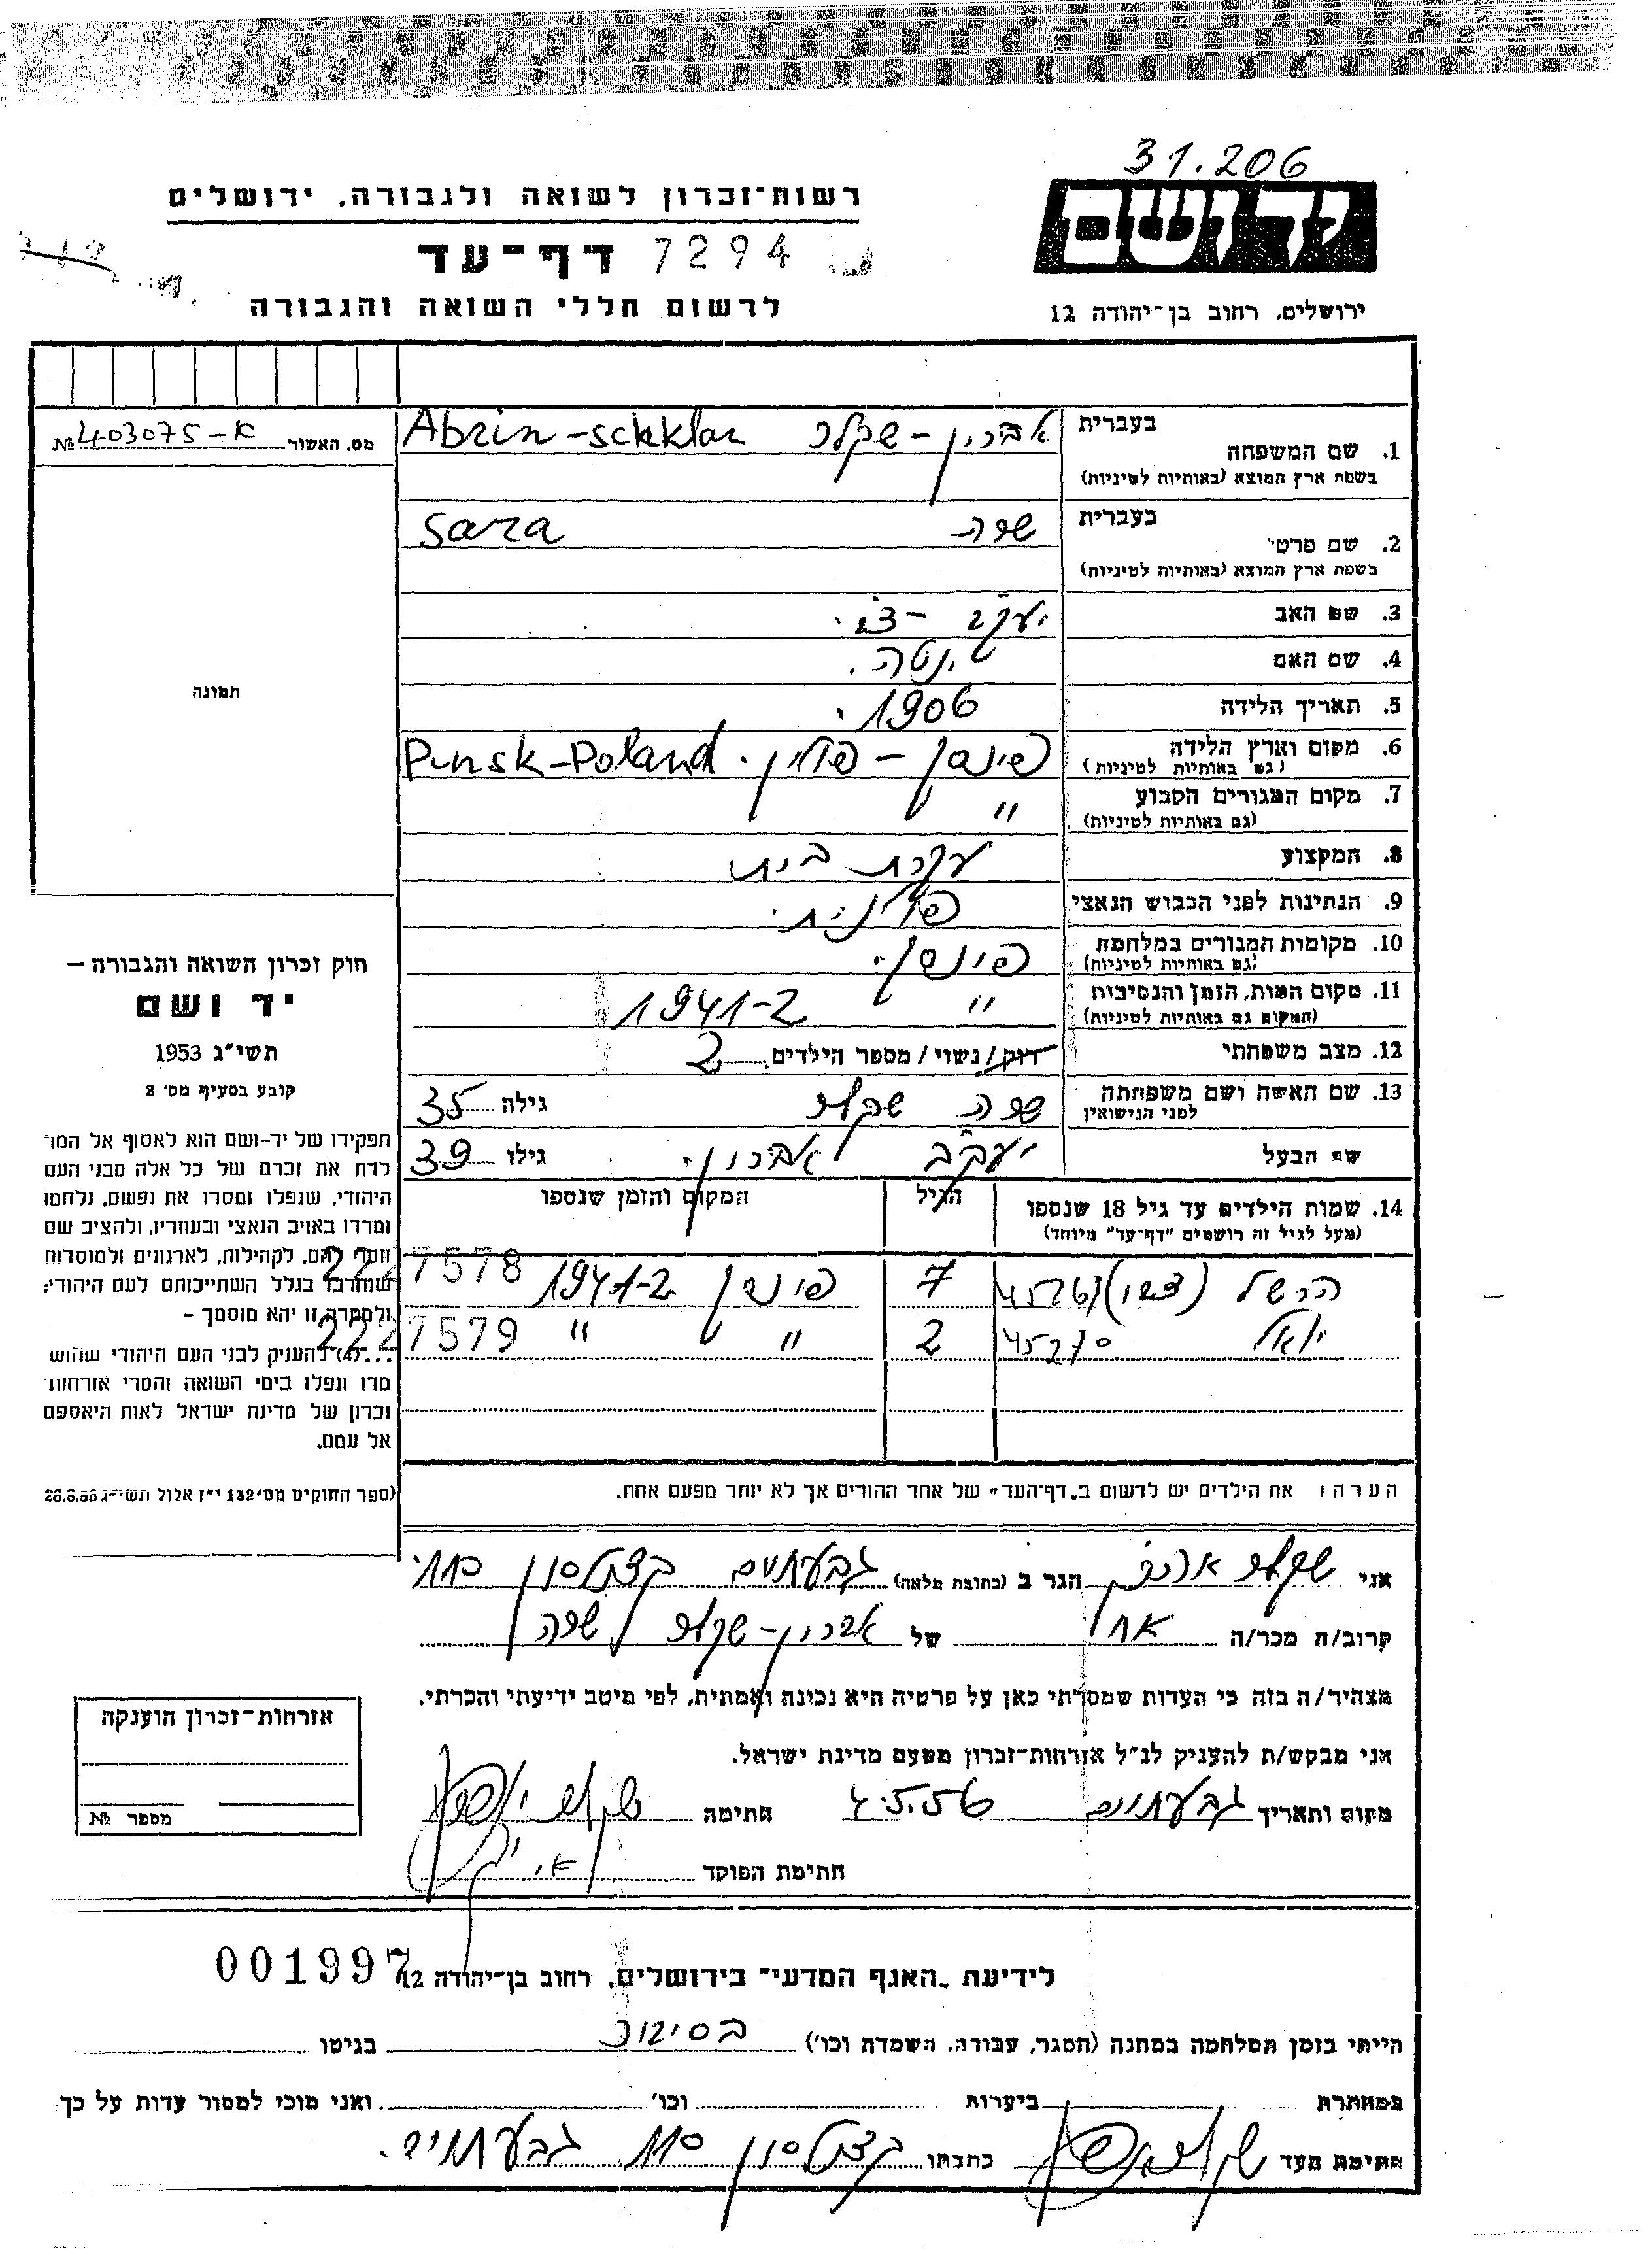 31.206
יד ושם
רשות־זכרון לשואה ולגבורה, ירושלים
דף־עד 7294
ירושלים, רחוב בן־יהודה 12
לרשום חללי השואה והגבורה
מס. האשור 403075-א №
תמונה
בעברית
1. שם המשפחה אברון-שקלר Abrin-schklar
בשפת ארץ המוצא (באותיות לטיניות)
בעברית
2. שם פרטי שרה Sara
בשפת ארץ המוצא (באותיות לטיניות)
3. שם האב יעקב-צבי
4. שם האם
5. תאריך הלידה 1906
6. מקום וארץ הלידה פינסק - פולין. Pinsk-Poland
(גם באותיות לטיניות)
7. מקום המגורים הקבוע "
(גם באותיות לטיניות)
8. המקצוע עקרת בית
9. הנתינות לפני הכבוש הנאצי פולנית.
10. מקומות המגורים במלחמה פינסק.
(גם באותיות לטיניות)
11. מקום המות, הזמן והנסיבות " 1941-2
(המקום גם באותיות לטיניות)
12. מצב משפחתי רוק/נשוי/מספר הילדים 2
13. שם האשה ושם משפחתה שרה שקלר גילה 35
לפני הנישואין
שם הבעל יעקב אברון. גילו 39
14. שמות הילדים עד גיל 18 שנספו הגיל המקום והזמן שנספו
(מעל לגיל זה רושמים "דף־עד" מיוחד)
הרשל (צבי) 7 פינסק 1941-2 2227578
יואל 45270 2 " " 2227579
הערה: את הילדים יש לרשום ב„דף־העד" של אחד ההורים אך לא יותר מפעם אחת.
חוק זכרון השואה והגבורה –
יד ושם
תשי"ג 1953
קובע בסעיף מס' 2
תפקידו של יד-ושם הוא לאסוף אל המו־
לדת את זכרם של כל אלה מבני העם
היהודי, שנפלו ומסרו את נפשם, נלחמו
ומרדו באויב הנאצי ובעוזריו, ולהציב שם
וזכר להם, לקהילות, לארגונים ולמוסדות
שנחרבו בגלל השתייכותם לעם היהודי;
ולמטרה זו יהא מוסמך –
...(4) להעניק לבני העם היהודי שהוש־
מדו ונפלו בימי השואה והמרי אזרחות־
זכרון של מדינת ישראל לאות היאספם
אל עמם.
(ספר החוקים מס' 132 י"ז אלול תשי"ג
אני שקלר הגר ב (כתובת מלאה) גבעתיים כצנלסון 110.
קרוב/ה מכר/ה אח של אברון-שקלר שרה
מצהיר/ה בזה כי העדות שמסרתי כאן על פרטיה היא נכונה ואמתית, לפי מיטב ידיעתי והכרתי.
אני מבקש/ת להעניק לנ"ל אזרחות־זכרון מטעם מדינת ישראל.
מקום ותאריך גבעתיים 4.5.56 חתימה שקלר
חתימת הפוקד
אזרחות־זכרון הוענקה
מספר №
לידיעת „האגף המדעי" בירושלים, רחוב בן־יהודה 12 001997
הייתי בזמן המלחמה במחנה (הסגר, עבודה, השמדה וכו') בסיביר בגיטו
במחתרת ביערות וכו' ואני מוכן למסור עדות על כך
חתימת העד שקלר כתבתו כצנלסון 110 גבעתיים.